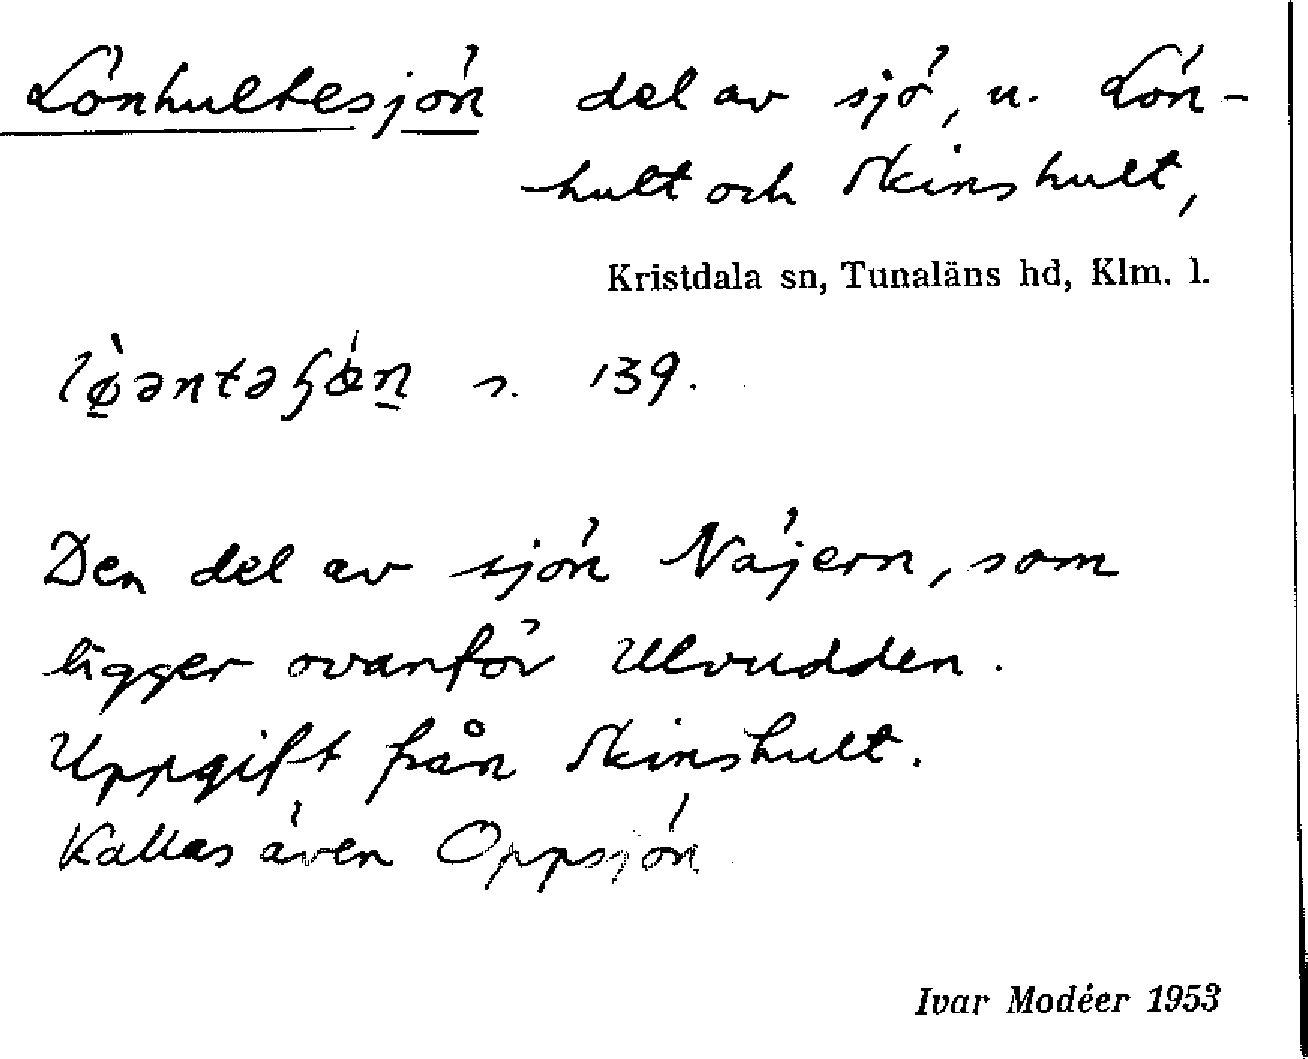 Lönhultesjön del av sjö, u. Lön-
hult och Skinshult,
Kristdala sn, Tunaläns hd, Klm. l.
s. 139.
Den del av sjön Näjern, som
ligger ovanför Ulvudden.
Uppgift från Skinshult.
Kallas även Oppsjön
Ivar Modéer 1953